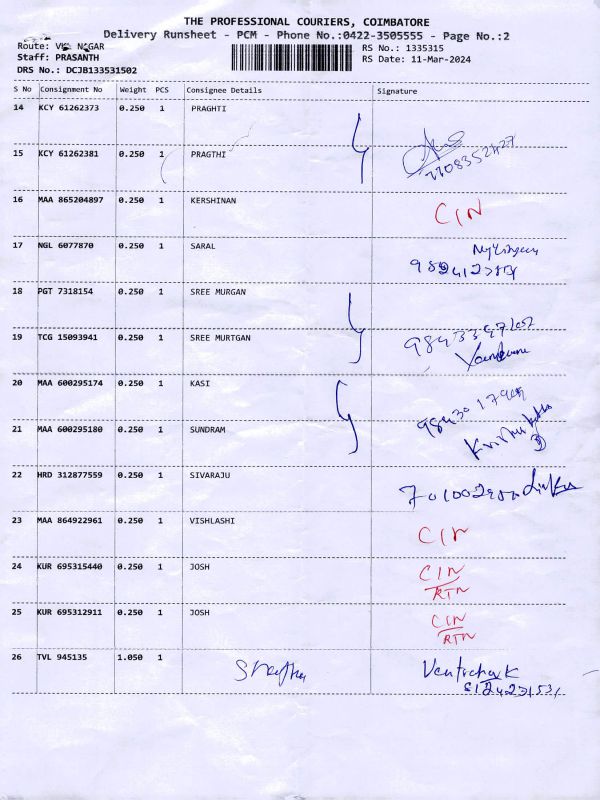 THE PROFESSIONAL COURIERS, COIMBATORE
Delivery Runsheet - PCM - Phone No.:0422-3505555 - Page No.:2
Route: NAGAR RS No.: 1335315
Staff: PRASANTH RS Date: 11-Mar-2024
DRS No.: DCJB133531502
S No Consignment No Weight PCS Consignee Details Signature
14 KCY 61262373 0.250 1 PRAGHTI
15 KCY 61262381 0.250 1 PRAGTHI
16 MAA 865204897 0.250 1 KERSHINAN CIN
17 NGL 6077870 0.250 1 SARAL
18 PGT 7318154 0.250 1 SREE MURGAN
19 TCG 15093941 0.250 1 SREE MURTGAN
20 MAA 600295174 0.250 1 KASI
21 MAA 600295180 0.250 1 SUNDRAM
22 HRD 312877559 0.250 1 SIVARAJU
23 MAA 864922961 0.250 1 VISHLASHI CIN
24 KUR 695315440 0.250 1 JOSH CIN
RTN
25 KUR 695312911 0.250 1 JOSH CIN
RTN
26 TVL 945135 1.050 1